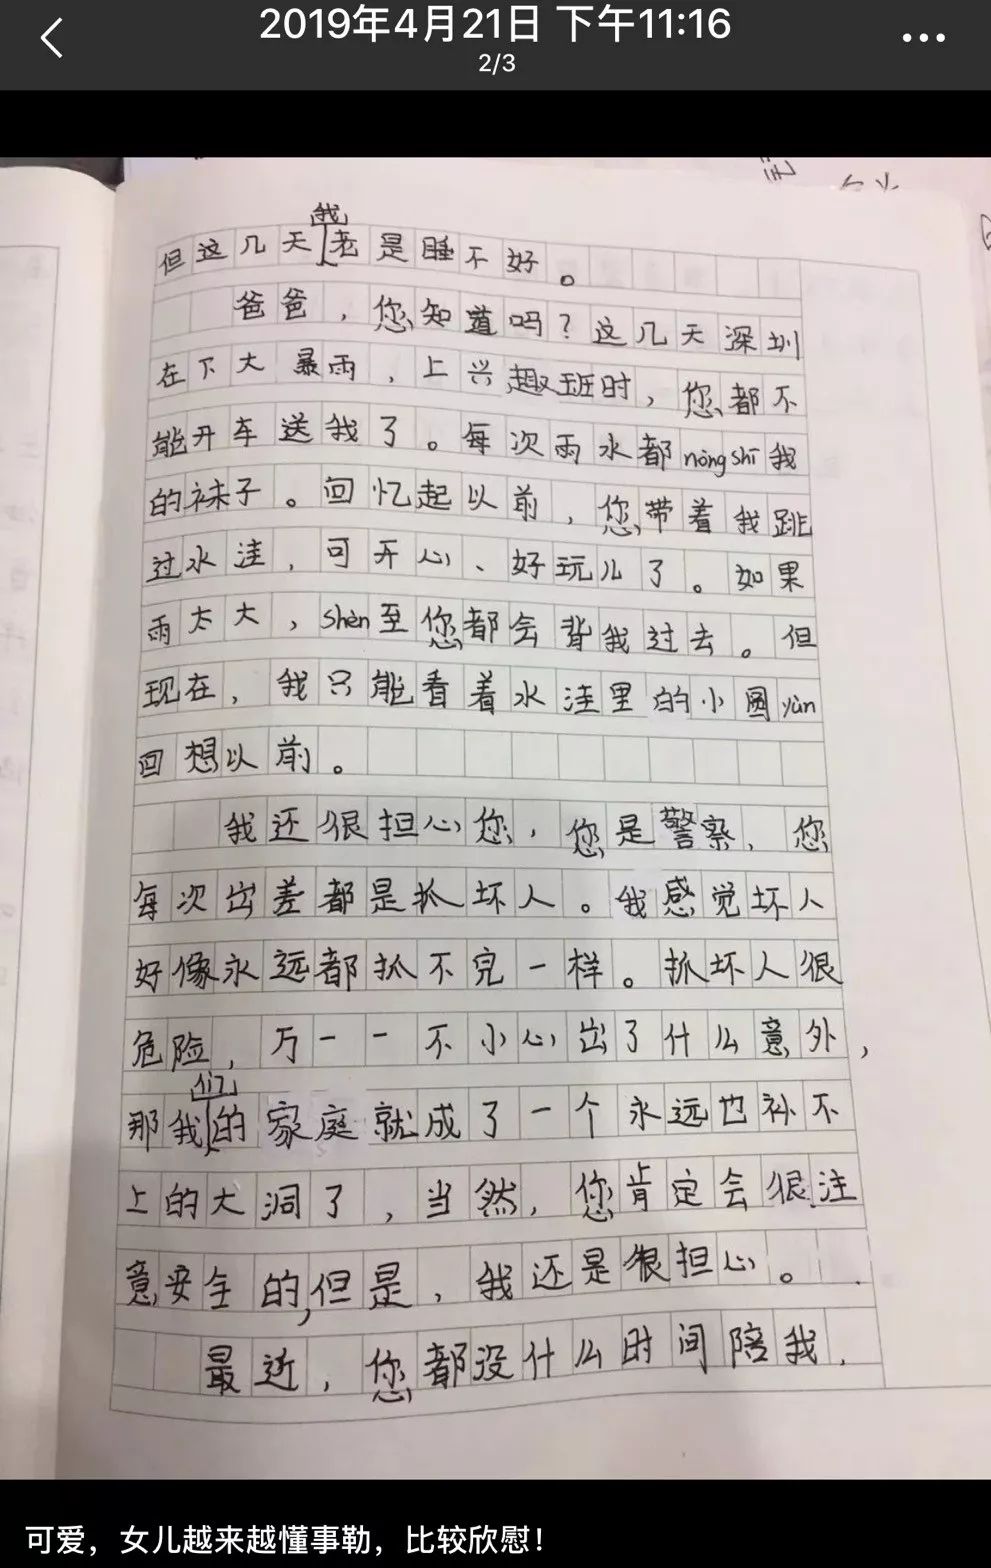 2019年4月21日 下午11:16
2/3
我
但这几天老是睡不好。
爸爸，您知道吗？这几天深圳
在下大暴雨，上兴趣班时，您都不
能开车送我了。每次雨水都nòng shī我
的袜子。回忆起以前，您带着我跳
过水洼，可开心、好玩儿了。如果
雨太大，shèn至您都会背我过去。但
现在，我只能看着水洼里的小圈yùn
回想以前。
我还很担心您，您是警察，您
每次出差都是抓坏人。我感觉坏人
好像永远都抓不完一样。抓坏人很
危险，万一一不小心出了什么意外，
们
那我的家庭就成了一个永远也补不
上的大洞了，当然，您肯定会很注
意安全的，但是，我还是很担心。
最近，您都没什么时间陪我，
可爱，女儿越来越懂事勒，比较欣慰！